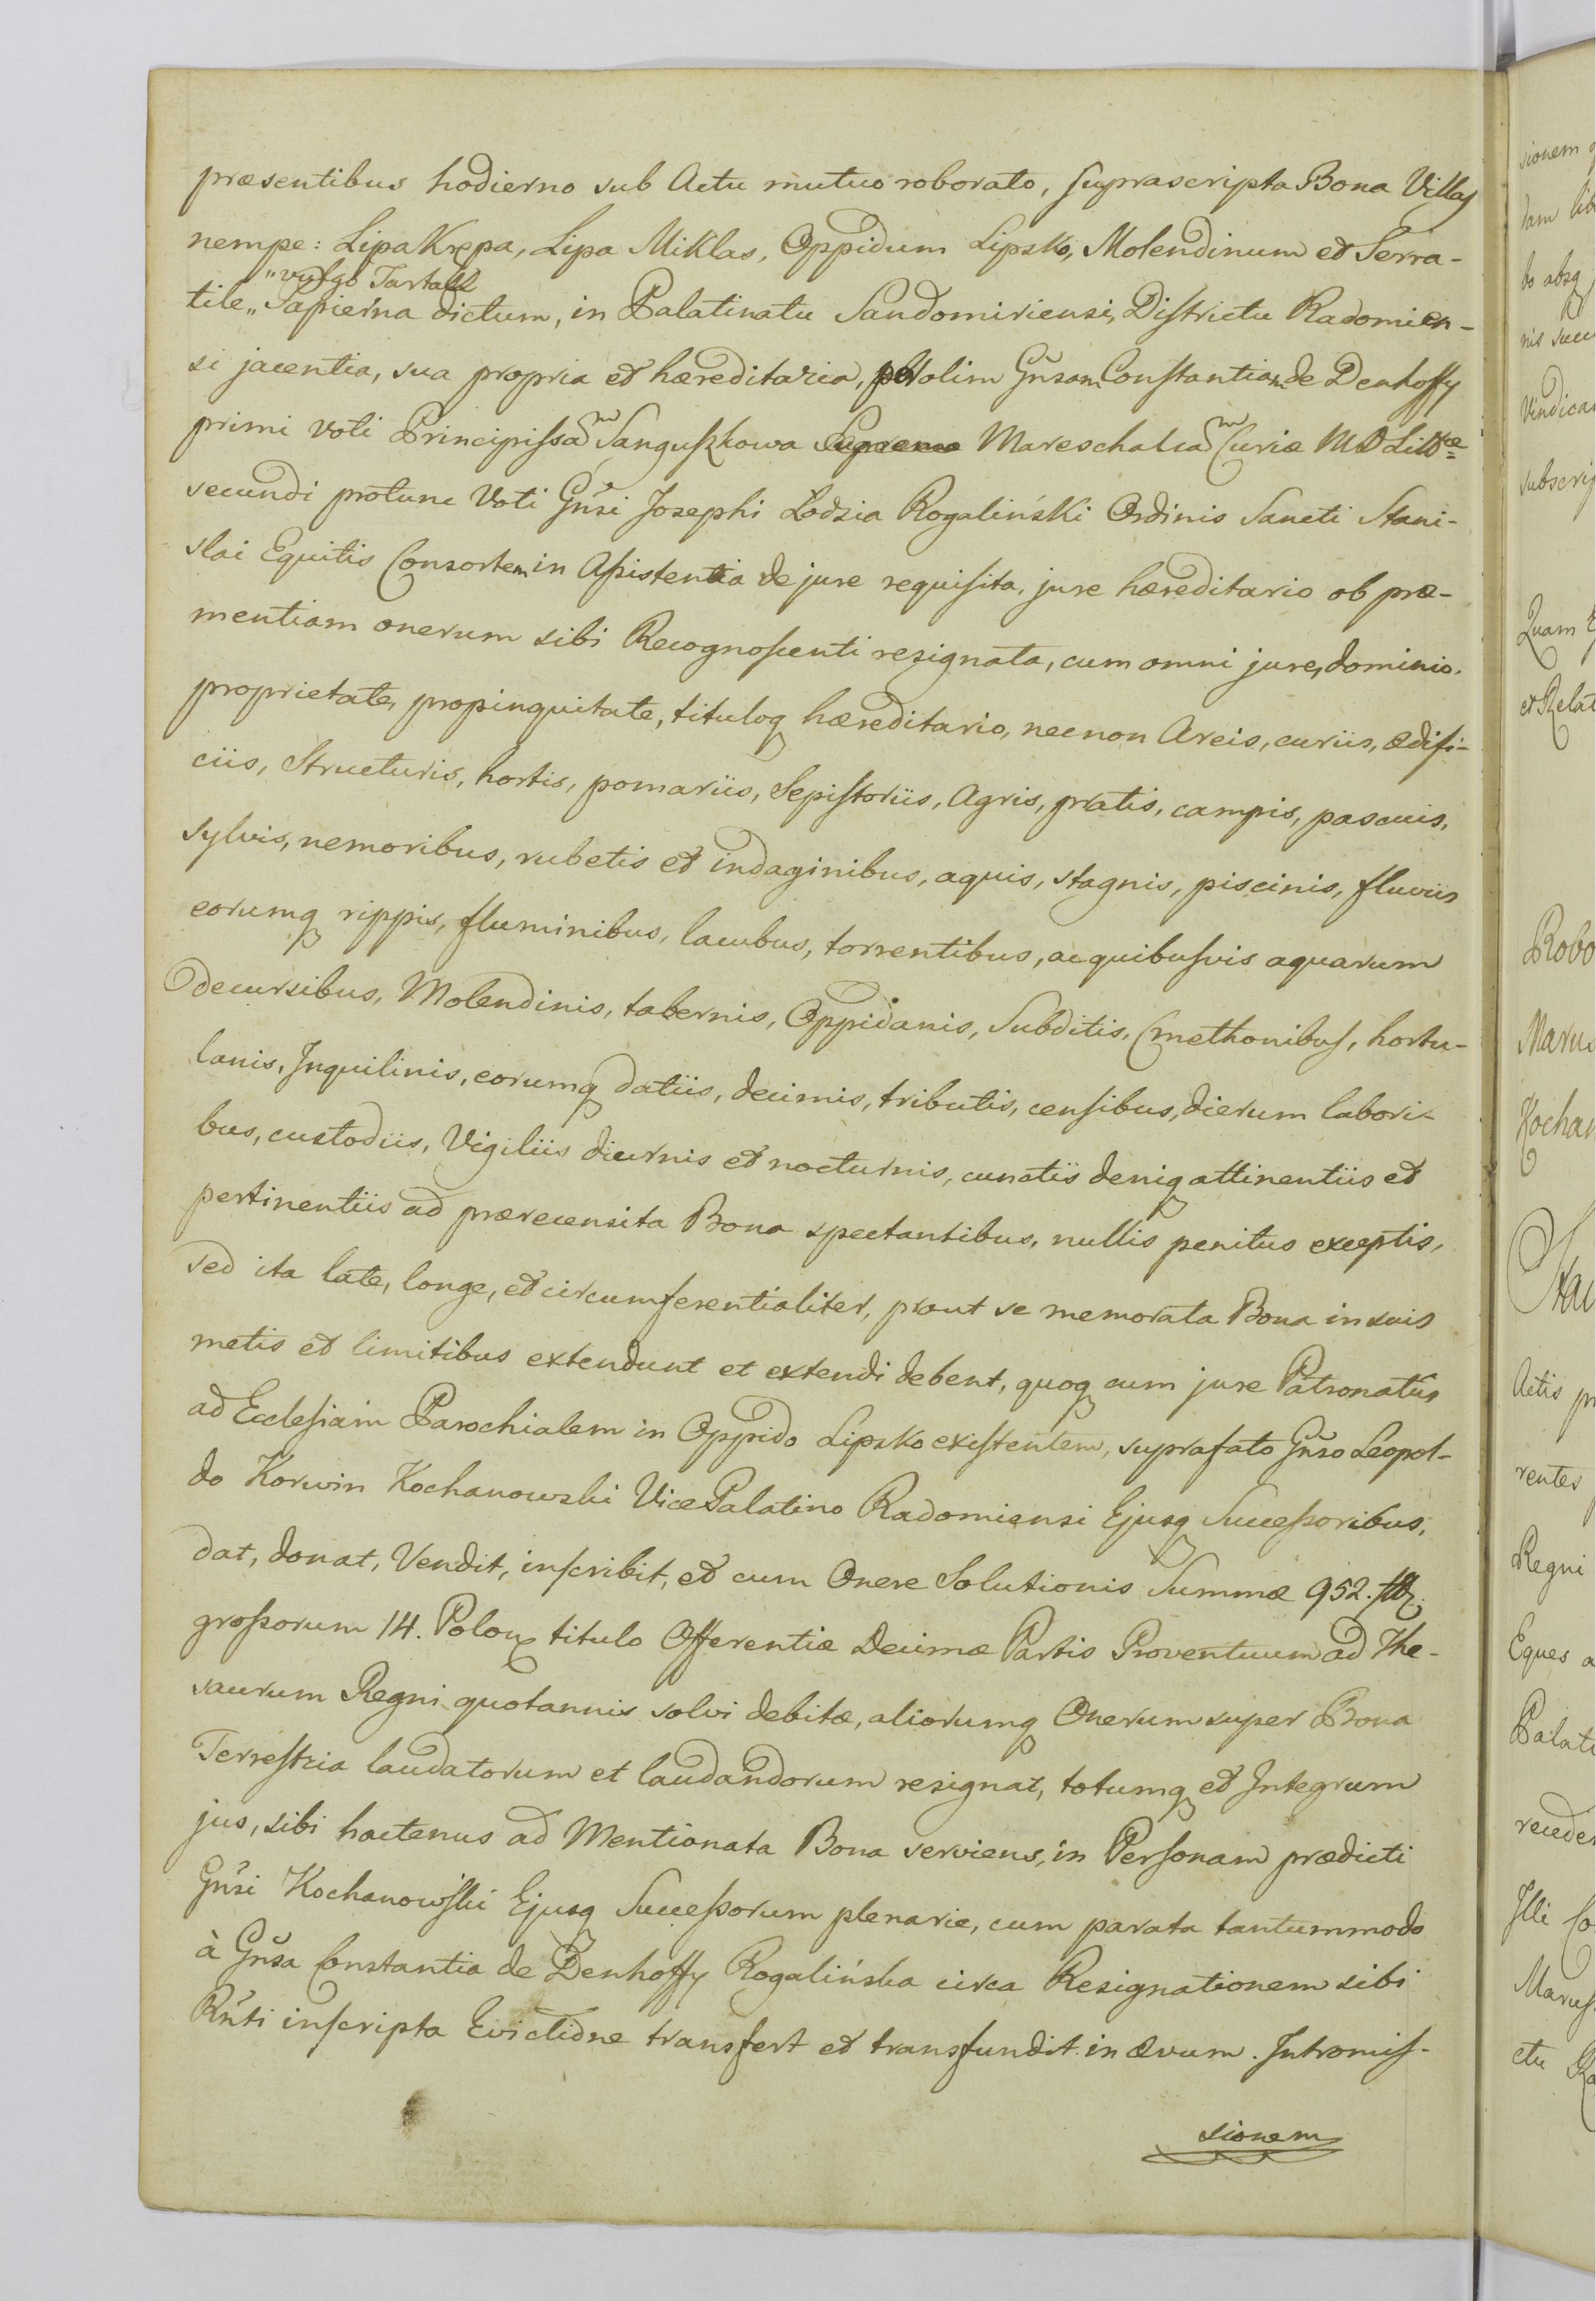 præsentibus hodierno sub Actu mutuo roborato, suprascripta Bona Villas
nempe: Lipa Krępa, Lipa Miklas, Oppidum Lipsko, Molendinum et Serra-
"vulgo Tartak
tile „ Papiernia dictum, in Palatinatu Sandomiriensi, Districtu Radomien-
si jacentia, sua propria et hæreditaria, per olim Gn̄sam Constantiam de Denhoffy
primi voti Principissam Sanguszkowa Mareschalcam Curiæ M D Littæ
secundi protunc Voti Gn̄si Josephi Lodzia Rogaliński Ordinis Sancti Stani-
slai Equitis Consortem in Assistentia de jure requisita, jure hæreditario ob præ-
mentiam onerum sibi Recognoscenti resignata, cum omni jure, dominio,
proprietate, propinquitate, tituloq hæreditario, necnon Areis, curiis, ædifi-
ciis, structuris, hortis, pomariis, Sepistoriis, Agris, pratis, campis, pascuis,
sylvis, nemoribus, rubetis et indaginibus, aquis, stagnis, piscinis, fluviis
eorumq rippis, fluminibus, lacubus, torrentibus, ac quibusvis aquarum
decursibus, Molendinis, tabernis, Oppidanis, Subditis, Cmethonibus, hortu-
lanis, Inquilinis, eorumq datiis, decimis, tributis, censibus, dierum labori-
bus, custodiis, Vigiliis diurnis et nocturnis, cunctis deniq attinentiis et
pertinentiis ad prærecensita Bona spectantibus, nullis penitus exceptis,
sed ita late, longe, et circumferentialiter, prout se memorata Bona in suis
metis et limitibus extendunt et extendi debent, quoq cum jure Patronatûs
ad Ecclesiam Parochialem in Oppido Lipsko existentem, suprafato Gn̄so Leopol-
do Korwin Kochanowski Vice Palatino Radomiensi Ejusq Successoribus,
dat, donat, Vendit, inscribit, et cum Onere Solutionis Summæ 952. fllʒ.
grossorum 14. Polon titulo Offerentiæ Decimæ Partis Proventuum ad The-
saurum Regni quotannis solvi debitæ, aliorumq Onerum super Bona
Terrestria laudatorum et laudandorum resignat, totumq et Integrum
jus, sibi hactenus ad Mentionata Bona serviens, in Personam prædicti
Gn̄si Kochanowski Ejusq Successorum plenarie, cum parata tantummodo
à Gn̄sa Constantia de Denhoffy Rogalińska circa Resignationem sibi
Rn̄ti inscripta Evictione transfert et transfundit in ævum. Intromis-
sionem
sionem
dam
bo absq
nis
Vindica
subscrip
Quam
et Relat
Robo
Kochan
Actis
rentes
Regni
Eques
Palati
Illi
ctu